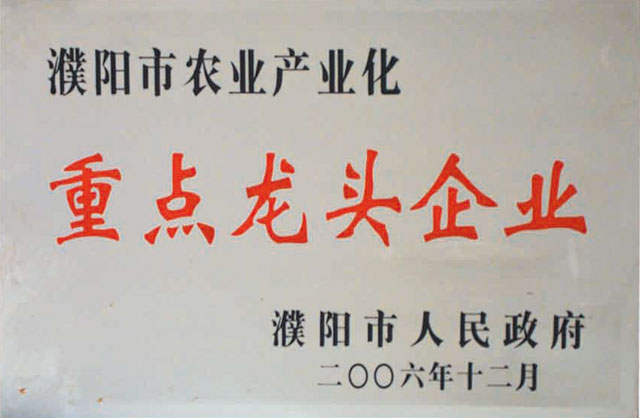 濮阳市农业产业化
重点龙头企业
濮阳市人民政府
二〇〇六年十二月